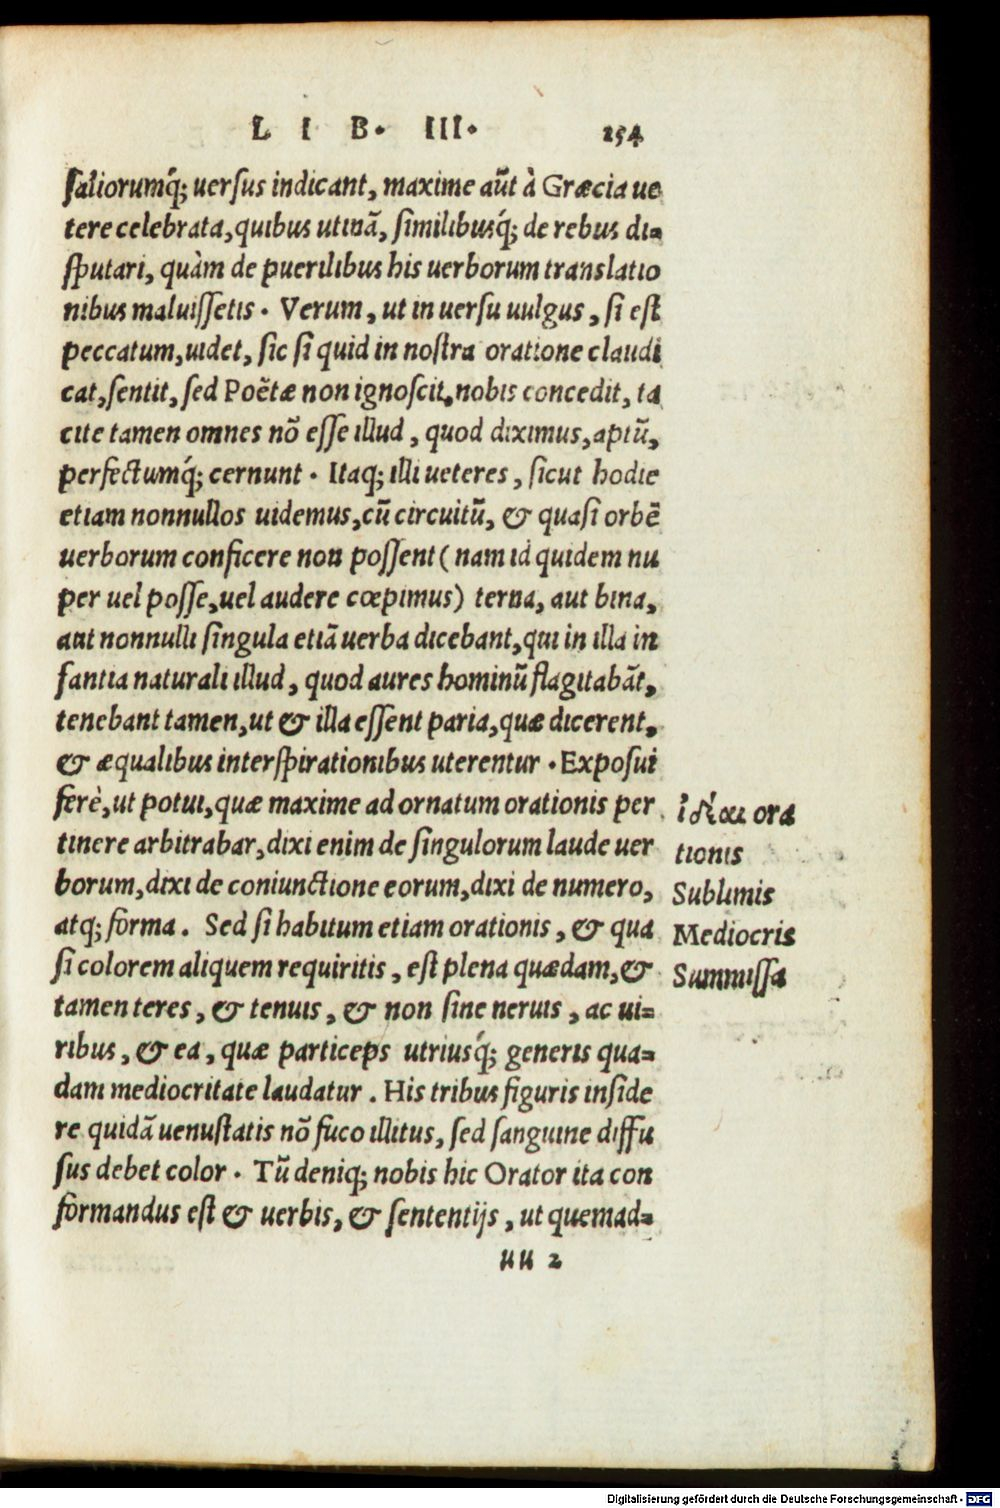 LIB. III. 154
ſaliorumq́; uerſus indicant, maxime aũt à Græcia ue
tere celebrata, quibus utinã, ſimilibusq́; de rebus di-
ſputari, quàm de puerilibus his uerborum translatio
nibus maluiſſetis. Verum, ut in uerſu uulgus, ſi eſt
peccatum, uidet, ſic ſi quid in noſtra oratione claudi
cat, ſentit, ſed Poëtæ non ignoſcit, nobis concedit, ta
cite tamen omnes nõ eſſe illud, quod diximus, aptũ,
perfectumq́; cernunt. Itaq; illi ueteres, ſicut hodie
etiam nonnullos uidemus, cũ circuitũ, & quaſi orbẽ
uerborum conficere non poſſent (nam id quidem nu
per uel poſſe, uel audere cœpimus) terna, aut bina,
aut nonnulli ſingula etiã uerba dicebant, qui in illa in
fantia naturali illud, quod aures hominũ flagitabãt,
tenebant tamen, ut & illa eſſent paria, quæ dicerent,
& æqualibus interſpirationibus uterentur. Expoſui
ferè, ut potui, quæ maxime ad ornatum orationis per
tinere arbitrabar, dixi enim de ſingulorum laude uer
borum, dixi de coniunctione eorum, dixi de numero,
atq; forma. Sed ſi habitum etiam orationis, & qua
ſi colorem aliquem requiritis, eſt plena quædam, &
tamen teres, & tenuis, & non ſine neruis, ac ui-
ribus, & ea, quæ particeps utriusq́; generis qua-
dam mediocritate laudatur. His tribus figuris inſide
re quidã uenuſtatis nõ fuco illitus, ſed ſanguine diffu
ſus debet color. Tũ deniq; nobis hic Orator ita con
formandus eſt & uerbis, & ſententijs, ut quemad-
uu 2
ἰδέαι ora
tionis
Sublimis
Mediocris
Summiſſa
Digitalisierung gefördert durch die Deutsche Forschungsgemeinschaft - DFG